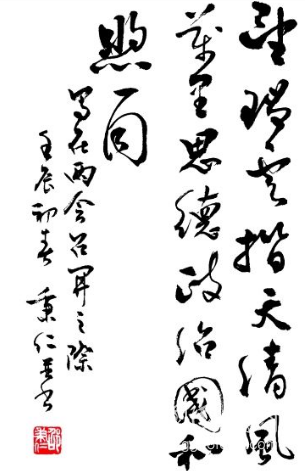 瑞雲指天清風
萬里思德政治國和
寫在兩會召開之際
壬辰初春 秉仁書